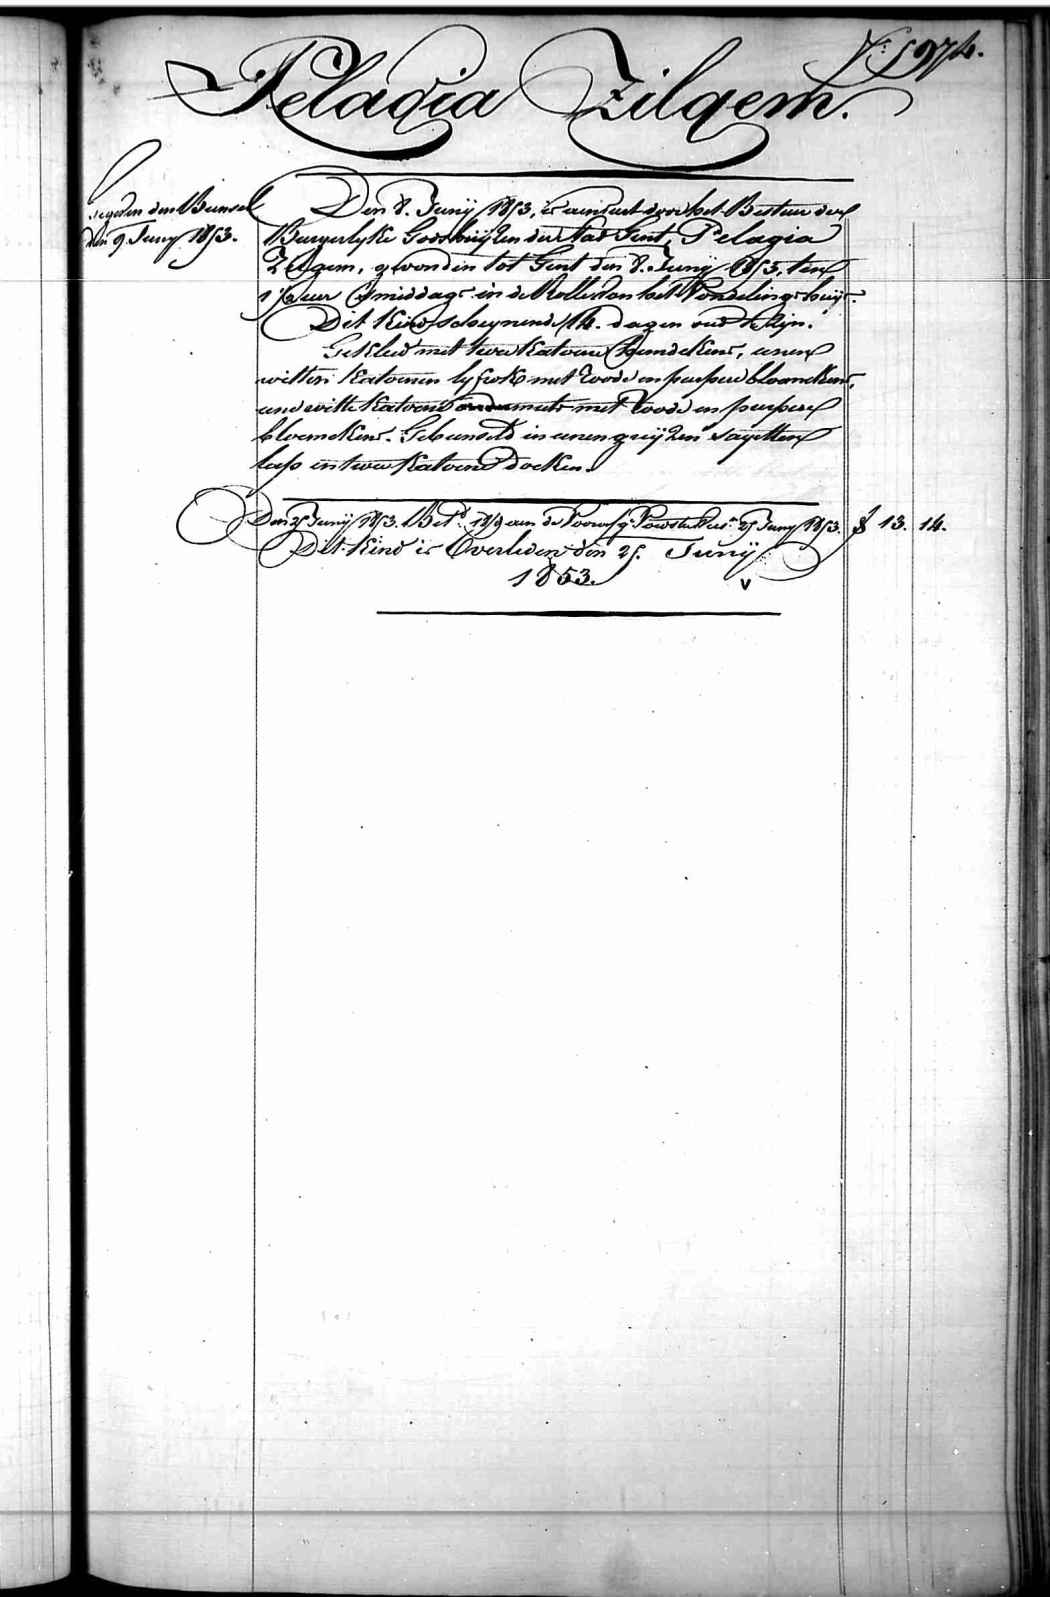 Nº 5974.
Pelagia Zilgem.
gegeven den Bunsel
den 9 Juny 1853.
Den 8. Junij 1853, is aenveert door het Bestuer der
Burgerlyke Godshuijzen der Stad Gent, Pelagia
Zilgem, gevonden tot Gent den 8. Junij 1853, ten
1 1/2 uer smiddags in de Rolle van het Vondelingshuijs.
Dit Kind scheynende 14. dagen oud te zijn.
Gekleed met twee Katoene Hemdekens, eenen
witten Katoenen lyfrok met roode en purpere bloemekens,
eene witte Katoene muts met roode en purpere
bloemekens. Gebunseld in eenen grijzen sayetten
lap en twee Katoene doeken.
Den 25 Junij 1853. Bet.d 18/9 aen de Voorsz. 25 Juny 1853. f 13. 14.
Dit Kind is Overleden den 25. Junij
1853.